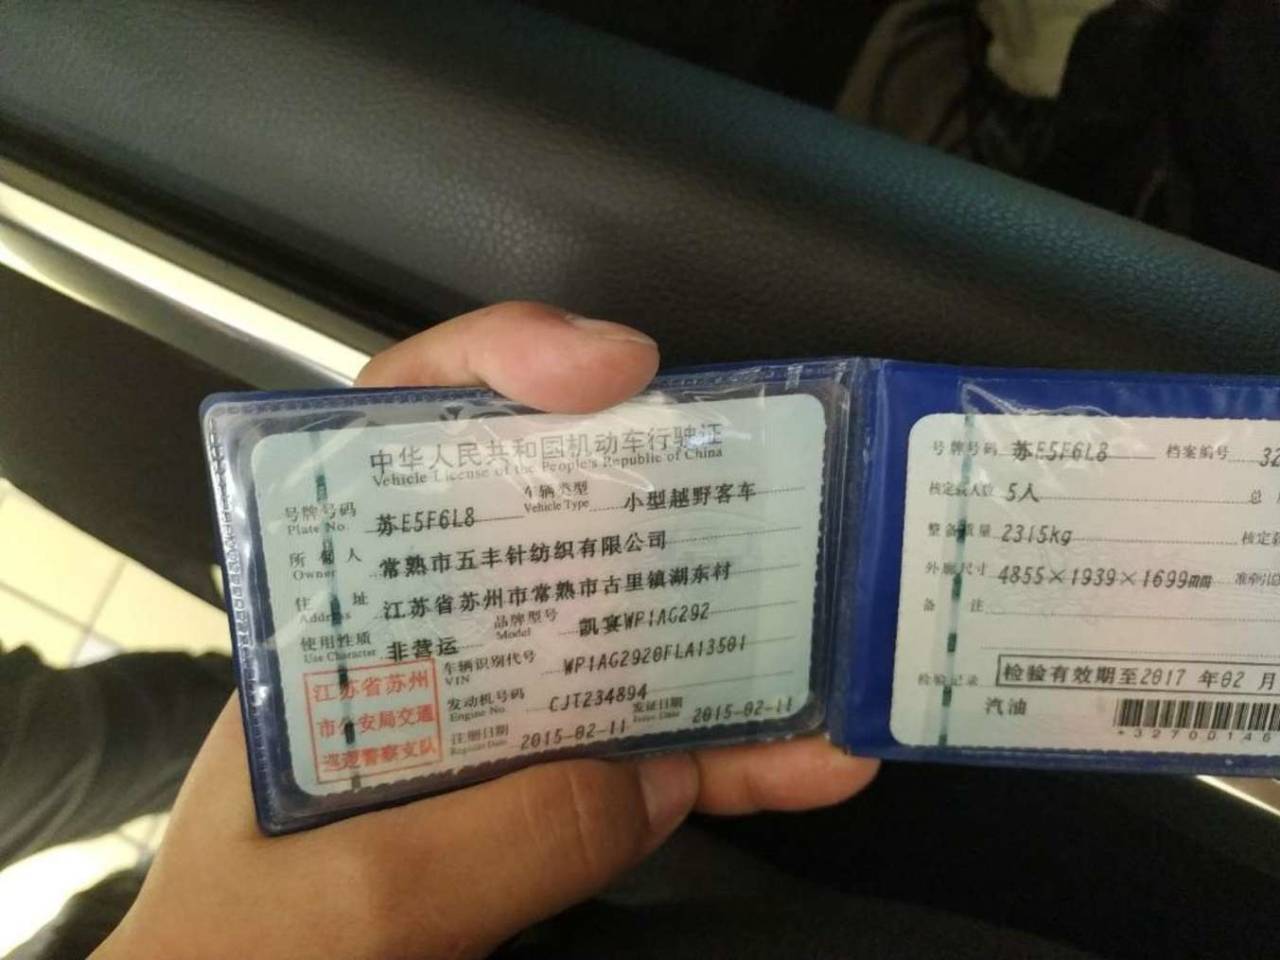 中华人民共和国机动车行驶证
Vehicle License of the People's Republic of China
号牌号码 Plate No. 苏E5F6L8 车辆类型 Vehicle Type 小型越野客车
所有人 Owner 常熟市五丰针纺织有限公司
住址 Address 江苏省苏州市常熟市古里镇湖东村
使用性质 Use Character 非营运 品牌型号 Model 凯宴WP1AG292
车辆识别代号 VIN WP1AG2920FLA13501
发动机号码 Engine No. CJT234894
注册日期 Register Date 2015-02-11 发证日期 Issue Date 2015-02-11
江苏省苏州
市公安局交通
巡逻警察支队
号牌号码 苏E5F6L8 档案编号 32
核定载人数 5人 总
整备质量 2315kg 核定
外廓尺寸 4855×1939×1699mm 准牵引总
备注
检验记录 检验有效期至2017年02月
汽油
*32700146